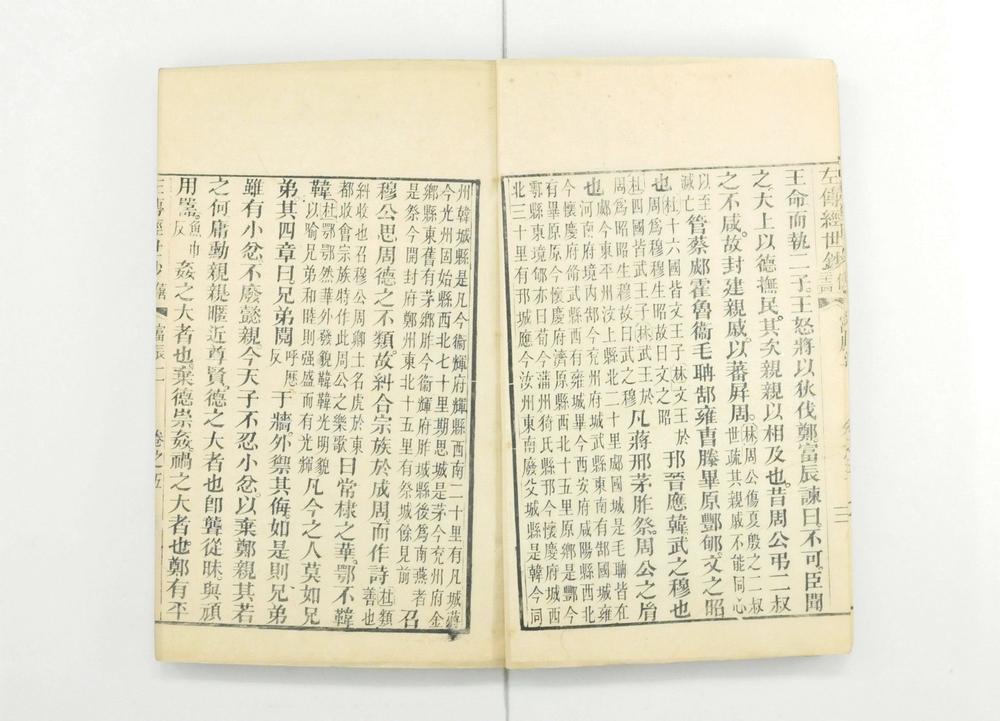 左傳經世鈔
王命而執二子王怒將以狄伐鄭富辰諫曰不可臣聞
之大上以德撫民其次親親以相及也昔周公弔二叔
之不咸故封建親戚以蕃屏周林周公傷夏殷之二叔
世疏其親戚不能同心
以至
滅亡管蔡郕霍魯衞毛聃郜雍曹滕畢原酆郇文之昭
也杜十六國皆文王子林文王於
周爲穆穆生昭故曰文之昭邘晉應韓武之穆也
杜四國皆武王子林武王於
周爲昭昭生穆故曰武之穆凡蔣邢茅胙祭周公之胤
也郕今東平州汶上縣北二十里郕國城是毛聃皆在
河南府境内郜今兖州府城武縣東南有郜國城雍
今懷慶府脩武縣西有雍城畢今西安府咸陽縣西北
有畢原原今懷慶府濟原縣西北十五里原鄉是酆今
鄠縣東境郇亦曰荀今蒲州猗氏縣邘今懷慶府城西
北三十里有邘城應今汝州東南廢父城縣是韓今同
州韓城縣是凡今衞輝府輝縣西南二十里有凡城蔣
今光州固始縣西北七十里期思城是茅今兖州府金
鄉縣東舊有茅鄉胙今衞輝府胙城縣後爲南燕者
是祭今開封府鄭州東北十五里有祭城餘見前召
穆公思周德之不類故糾合宗族於成周而作詩杜類善也
糾收也召穆公周卿士名虎於東
都收會宗族時作此周公之樂歌曰常棣之華鄂不韡
韡杜鄂鄂然華外發貌韡韡光明貌
以喻兄弟和睦則强盛而有光輝凡今之人莫如兄
弟其四章曰兄弟鬩呼歷
反于牆外禦其侮如是則兄弟
雖有小忿不廢懿親今天子不忍小忿以棄鄭親其若
之何庸勳親親暱近尊賢德之大者也卽聾從昧與頑
用嚚魚巾
反姦之大者也棄德崇姦禍之大者也鄭有平
富辰二
卷之五